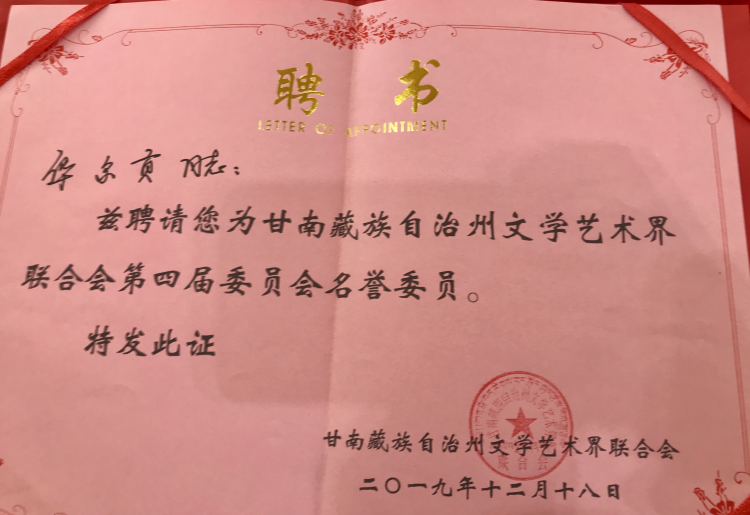 聘 书
LETTER OF APPOINTMENT
华尔贡 同志：
兹聘请您为甘南藏族自治州文学艺术界
联合会第四届委员会名誉委员。
特发此证
甘南藏族自治州文学艺术界联合会
二〇一九年十二月十八日